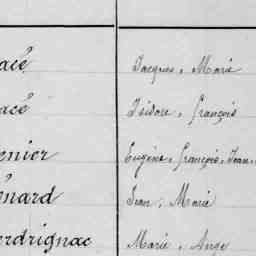 acé Jacques, Marie
acé Isidore, François
enier Eugène, François, Jean
énard Jean, Marie
erdrignac Marie, Ange